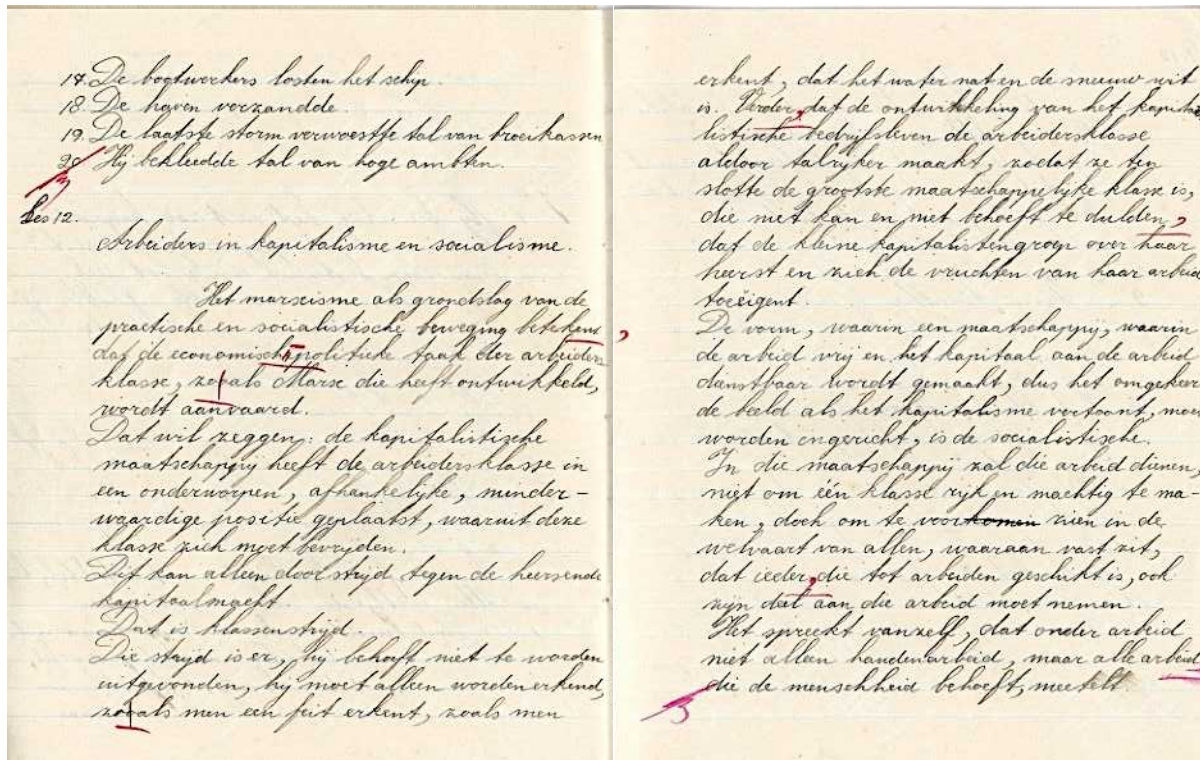 17. De bootwerkers losten het schip.
18. De haven verzandde.
19. De laatste storm verwoestte tal van broeikassen
20. Hij bekleedde tal van hoge ambten.
Les 12.
Arbeiders in kapitalisme en socialisme.
Het marxisme als grondslag van de
practische en socialistische beweging betekent
dat de economisch politieke taak der arbeiders
klasse, zooals Marx die heeft ontwikkeld,
wordt aanvaard.
Dat wil zeggen: de kapitalistische
maatschappij heeft de arbeidersklasse in
een onderworpen, afhankelijke, minder-
waardige positie geplaatst, waaruit deze
klasse zich moet bevrijden.
Dit kan alleen door strijd tegen de heersende
kapitaalmacht.
Dat is klassenstrijd.
Die strijd is er, hij behoeft niet te worden
uitgevonden, hij moet alleen worden erkend,
zooals men een feit erkent, zoals men
erkent, dat het water nat en de sneeuw wit
is. Verder, dat de ontwikkeling van het kapita
listische bedrijfsleven de arbeidersklasse
aldoor talrijker maakt, zodat ze ten
slotte de grootste maatschappelijke klasse is,
die niet kan en niet behoeft te dulden,
dat de kleine kapitalistengroep over haar
heerst en zich de vruchten van haar arbeid
toeëigent.
De vorm, waarin een maatschappij, waarin
de arbeid vrij en het kapitaal aan de arbeid
dienstbaar wordt gemaakt, dus het omgekeer
de beeld als het kapitalisme vertoont, moet
worden ingericht, is de socialistische.
In die maatschappij zal die arbeid dienen,
niet om één klasse rijk en machtig te ma-
ken, doch om te voorkomen zien in de
welvaart van allen, waaraan vast zit,
dat ieder, die tot arbeiden geschikt is, ook
zijn deel aan die arbeid moet nemen.
Het spreekt vanzelf, dat onder arbeid
niet alleen handenarbeid, maar alle arbeid
die de menschheid behoeft, meetelt